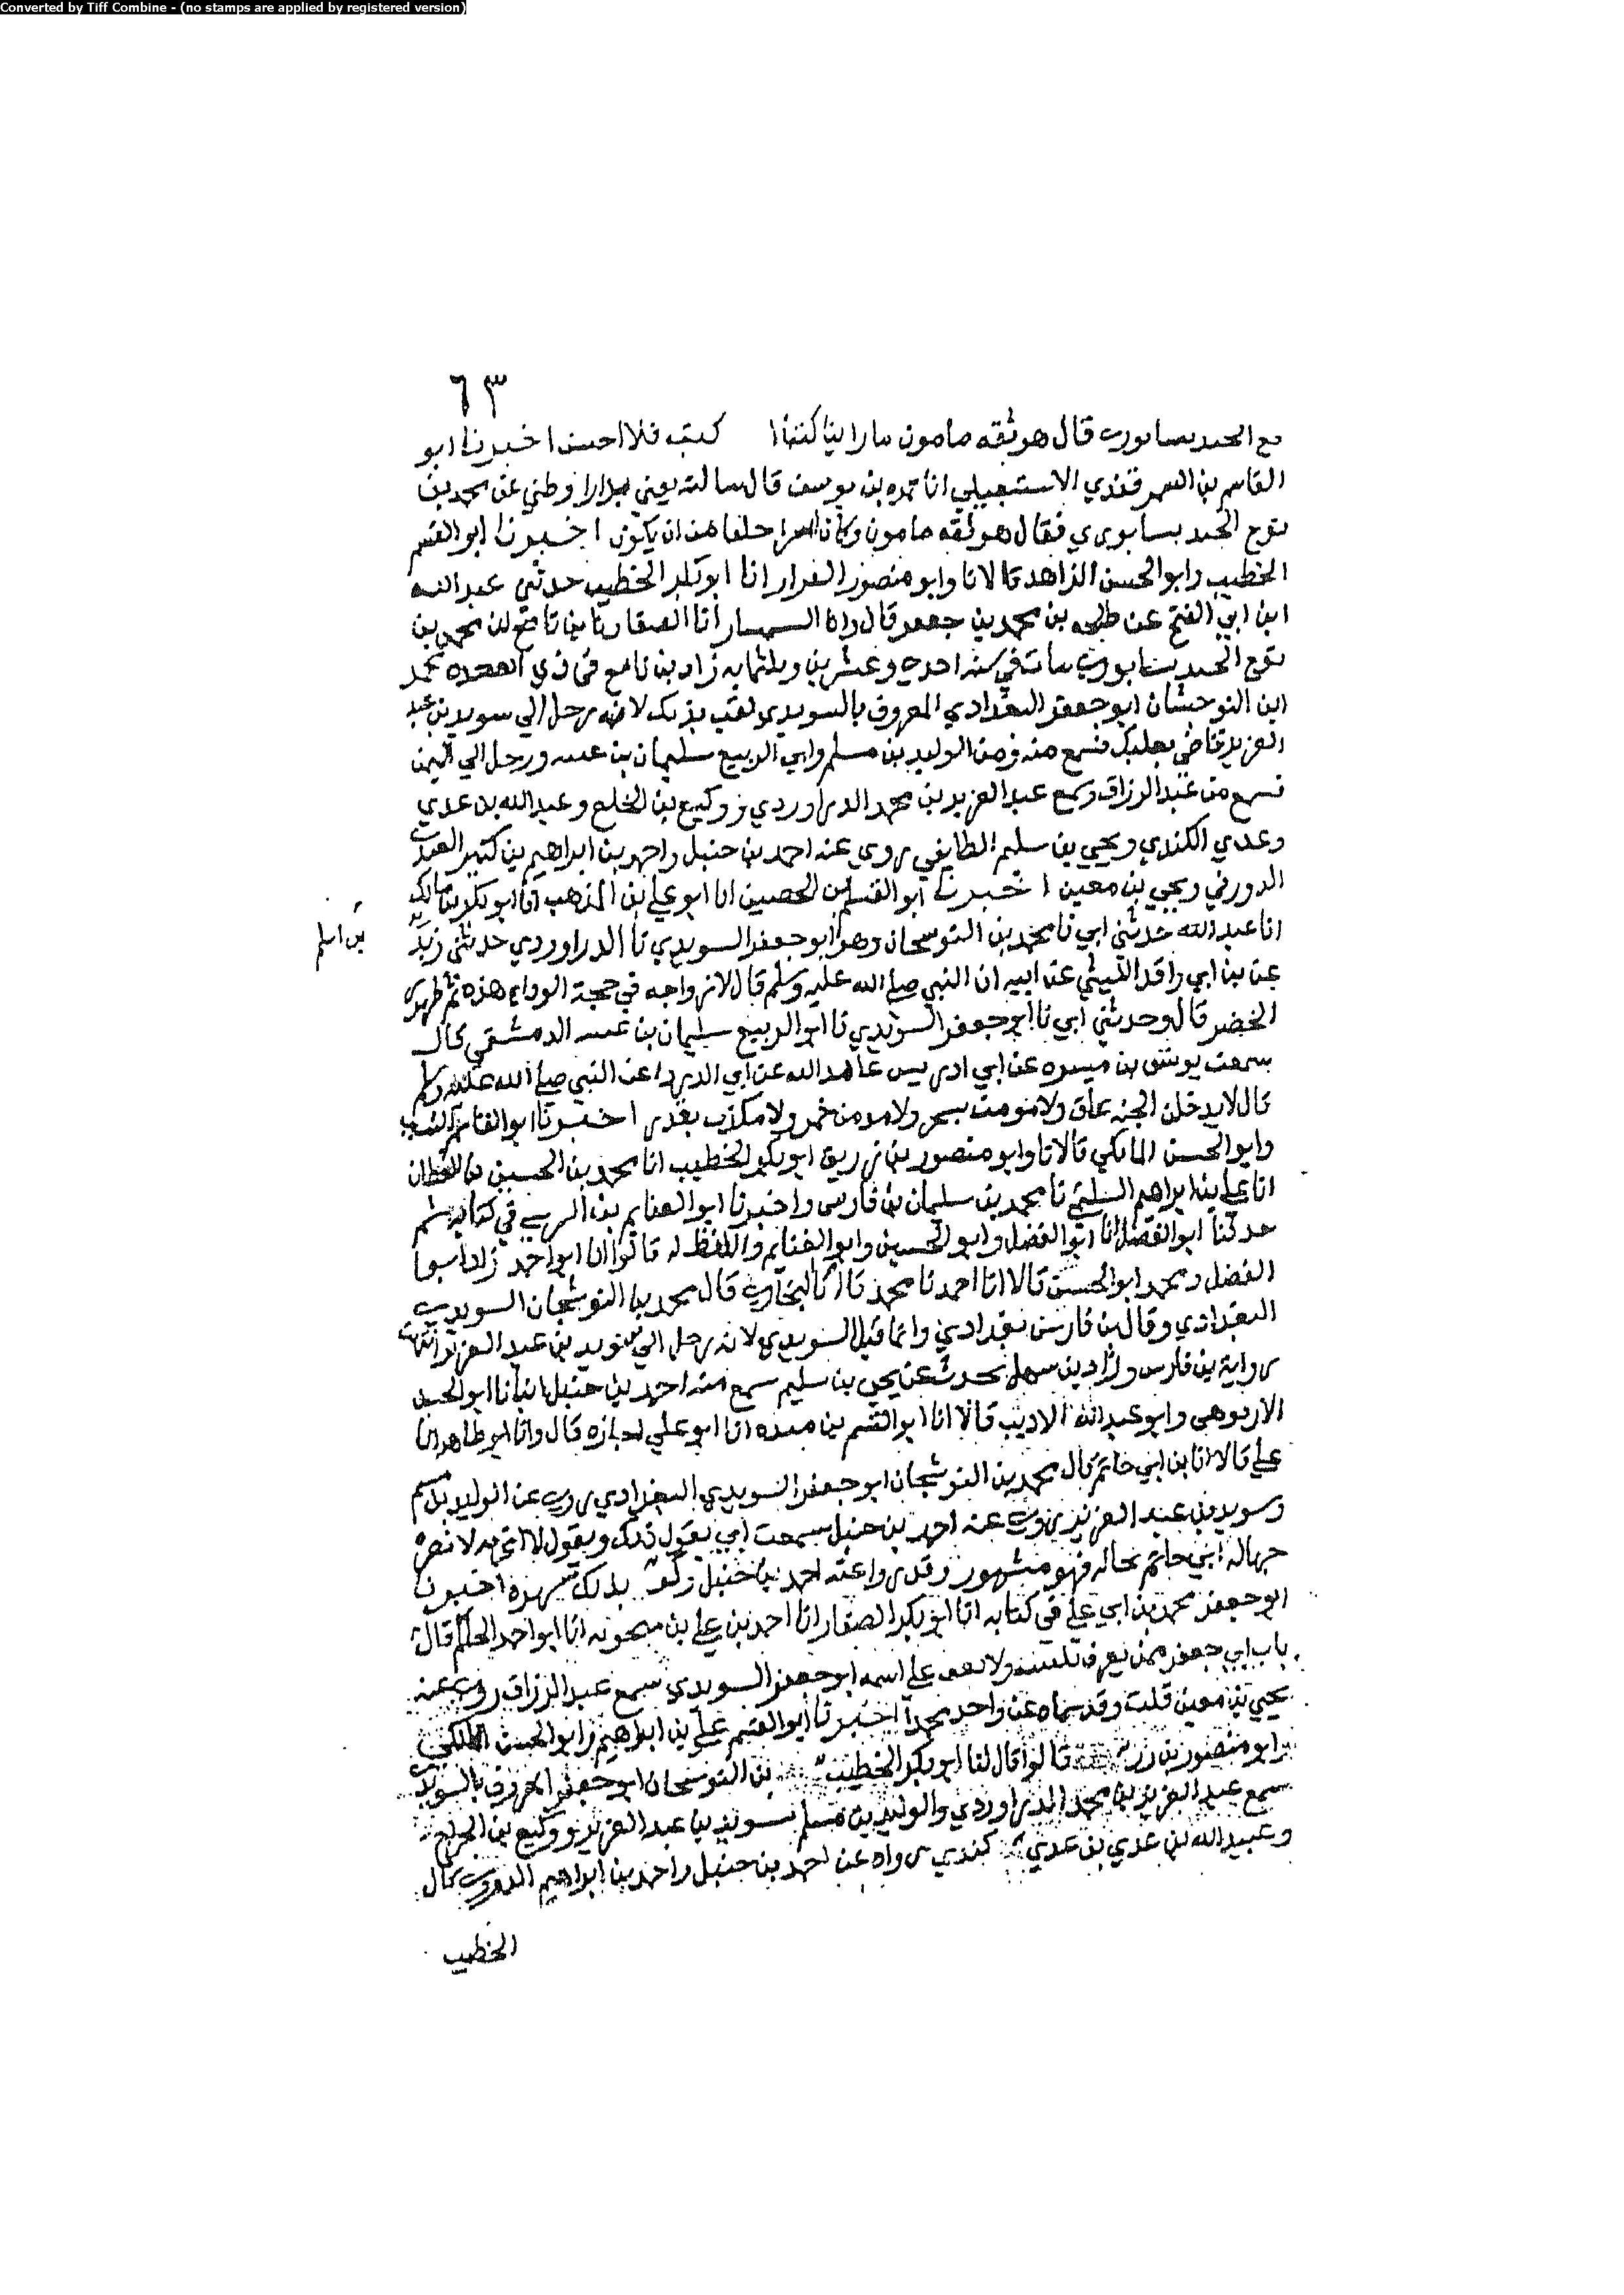 Converted by Tiff Combine - (no stamps are applied by registered version)
٦٣
قال هو ثقه مامون ما راينا كتبا احسن اخبرنا ابو
القاسم بن السمرقندي انا حمزه بن يوسف قال سالته يعني الدارقطني عن محمد بن
نوح الجند يسابوري فقال هو ثقه مامون اخبرنا ابو القسم
الخطيب وابو الحسن الزاهد قالا نا وابو منصور انا ابو بكر الخطيب حدثني عبد الله
ابن ابي الفتح عن طلحه بن محمد بن جعفر قال وانا السمسار انا الصفار نا بن قانع ان محمد بن
نوح الجند يسابوري مات في سنه احدى وعشرين وثلثمايه زاد بن قانع في ذي القعده محمد
ابن النوشجان ابو جعفر البغدادي المعروف بالسويدي لقب بذلك لانه رحل الي سويد بن عبد
العزيز قاضي بعلبك فسمع منه ومن الوليد بن مسلم وابي الربيع سليمان بن عتبه ورحل الي اليمن
فسمع من عبد الرزاق وسمع عبد العزيز بن محمد الدراوردي ووكيع بن وعبد الله بن عدي
وعدي الكندي ويحيي بن سليم الطايفي روي عنه احمد بن حنبل واحمد بن ابراهيم بن كثير
الدورقي ويحيي بن معين اخبرنا ابو القسم بن الحصين انا ابو علي بن المذهب انا ابو بكر بن مالك
انا عبد الله حدثني ابي نا محمد بن النوشجان وهو ابو جعفر السويدي نا الدراوردي حدثني زيد
بن اسلم
عن بن ابي واقد الليثي عن ابيه ان النبي صلي الله عليه وسلم قال لازواجه في حجة الوداع هذه ثم ظهور
الحصر قال وحدثني ابي نا ابو جعفر السويدي نا ابو الربيع سليمان بن عتبه الدمشقي قال
سمعت يونس بن ميسره عن ابي ادريس عايذ الله عن ابي الدردا عن النبي صلي الله عليه وسلم
قال لا يدخل الجنه عاق ولا مومن بسحر ولا مدمن خمر ولا مكذب بقدر اخبرنا ابو القاسم النسيب
وابو الحسن المالكي قالا نا وابو منصور بن زريق ابو بكر الخطيب انا محمد بن الحسين القطان
انا علي بن ابراهيم نا محمد بن سليمان بن فارس واخبرنا ابو الغنايم بن النرسي في كتابه ثم
حدثنا ابو الفضل انا ابو الفضل وابو الحسين وابو الغنايم واللفظ له قالوا انا ابو احمد زاد ابو
الفضل ومحمد ابو الحسن قالا انا احمد نا محمد قال انا البخاري قال محمد بن النوشجان السويدي
البغدادي وقال بن فارس بغدادي وانما قيل السويدي لانه رحل الي سويد بن عبد العزيز انتهت
رواية بن فارس وزاد بن سهل يحدث عن يحيي بن سليم سمع منه احمد بن حنبل انبانا ابو الحسين
وابو عبد الله الاديب قالا انا ابو القسم بن منده انا ابو علي اجازه قال وانا ابو طاهر انا
علي قالا انا بن ابي حاتم قال محمد بن النوشجان ابو جعفر السويدي البغدادي روى عن الوليد بن مسلم
وسويد بن عبد العزيز روى عنه احمد بن حنبل سمعت ابي يقول ذلك ويقول لا اعرفه لا تضره
جهالة ابي حاتم بحاله فهو مشهور وقد روا عنه احمد بن حنبل وكفى بذلك شهره اخبرنا
ابو جعفر محمد بن ابي علي في كتابه انا ابو بكر الصفار انا احمد بن علي بن منجويه انا ابو احمد الحاكم قال
باب ابي جعفر ممن يعرف بكنيته ولا يقف علي اسمه ابو جعفر السويدي سمع عبد الرزاق روى عنه
يحيي بن معين قلت وقد سماه غير واحد محمدا اخبرنا ابو القسم علي بن ابراهيم وابو الحسن المالكي
وابو منصور بن زريق قالوا قال لنا ابو بكر الخطيب بن النوشجان ابو جعفر المعروف بالسويدي
سمع عبد العزيز بن محمد الدراوردي والوليد بن مسلم سويد بن عبد العزيز ووكيع بن الجراح
وعبيد الله بن عدي بن عدي كندي رواه عن احمد بن حنبل واحمد بن ابراهيم الدورقي قال
الخطيب